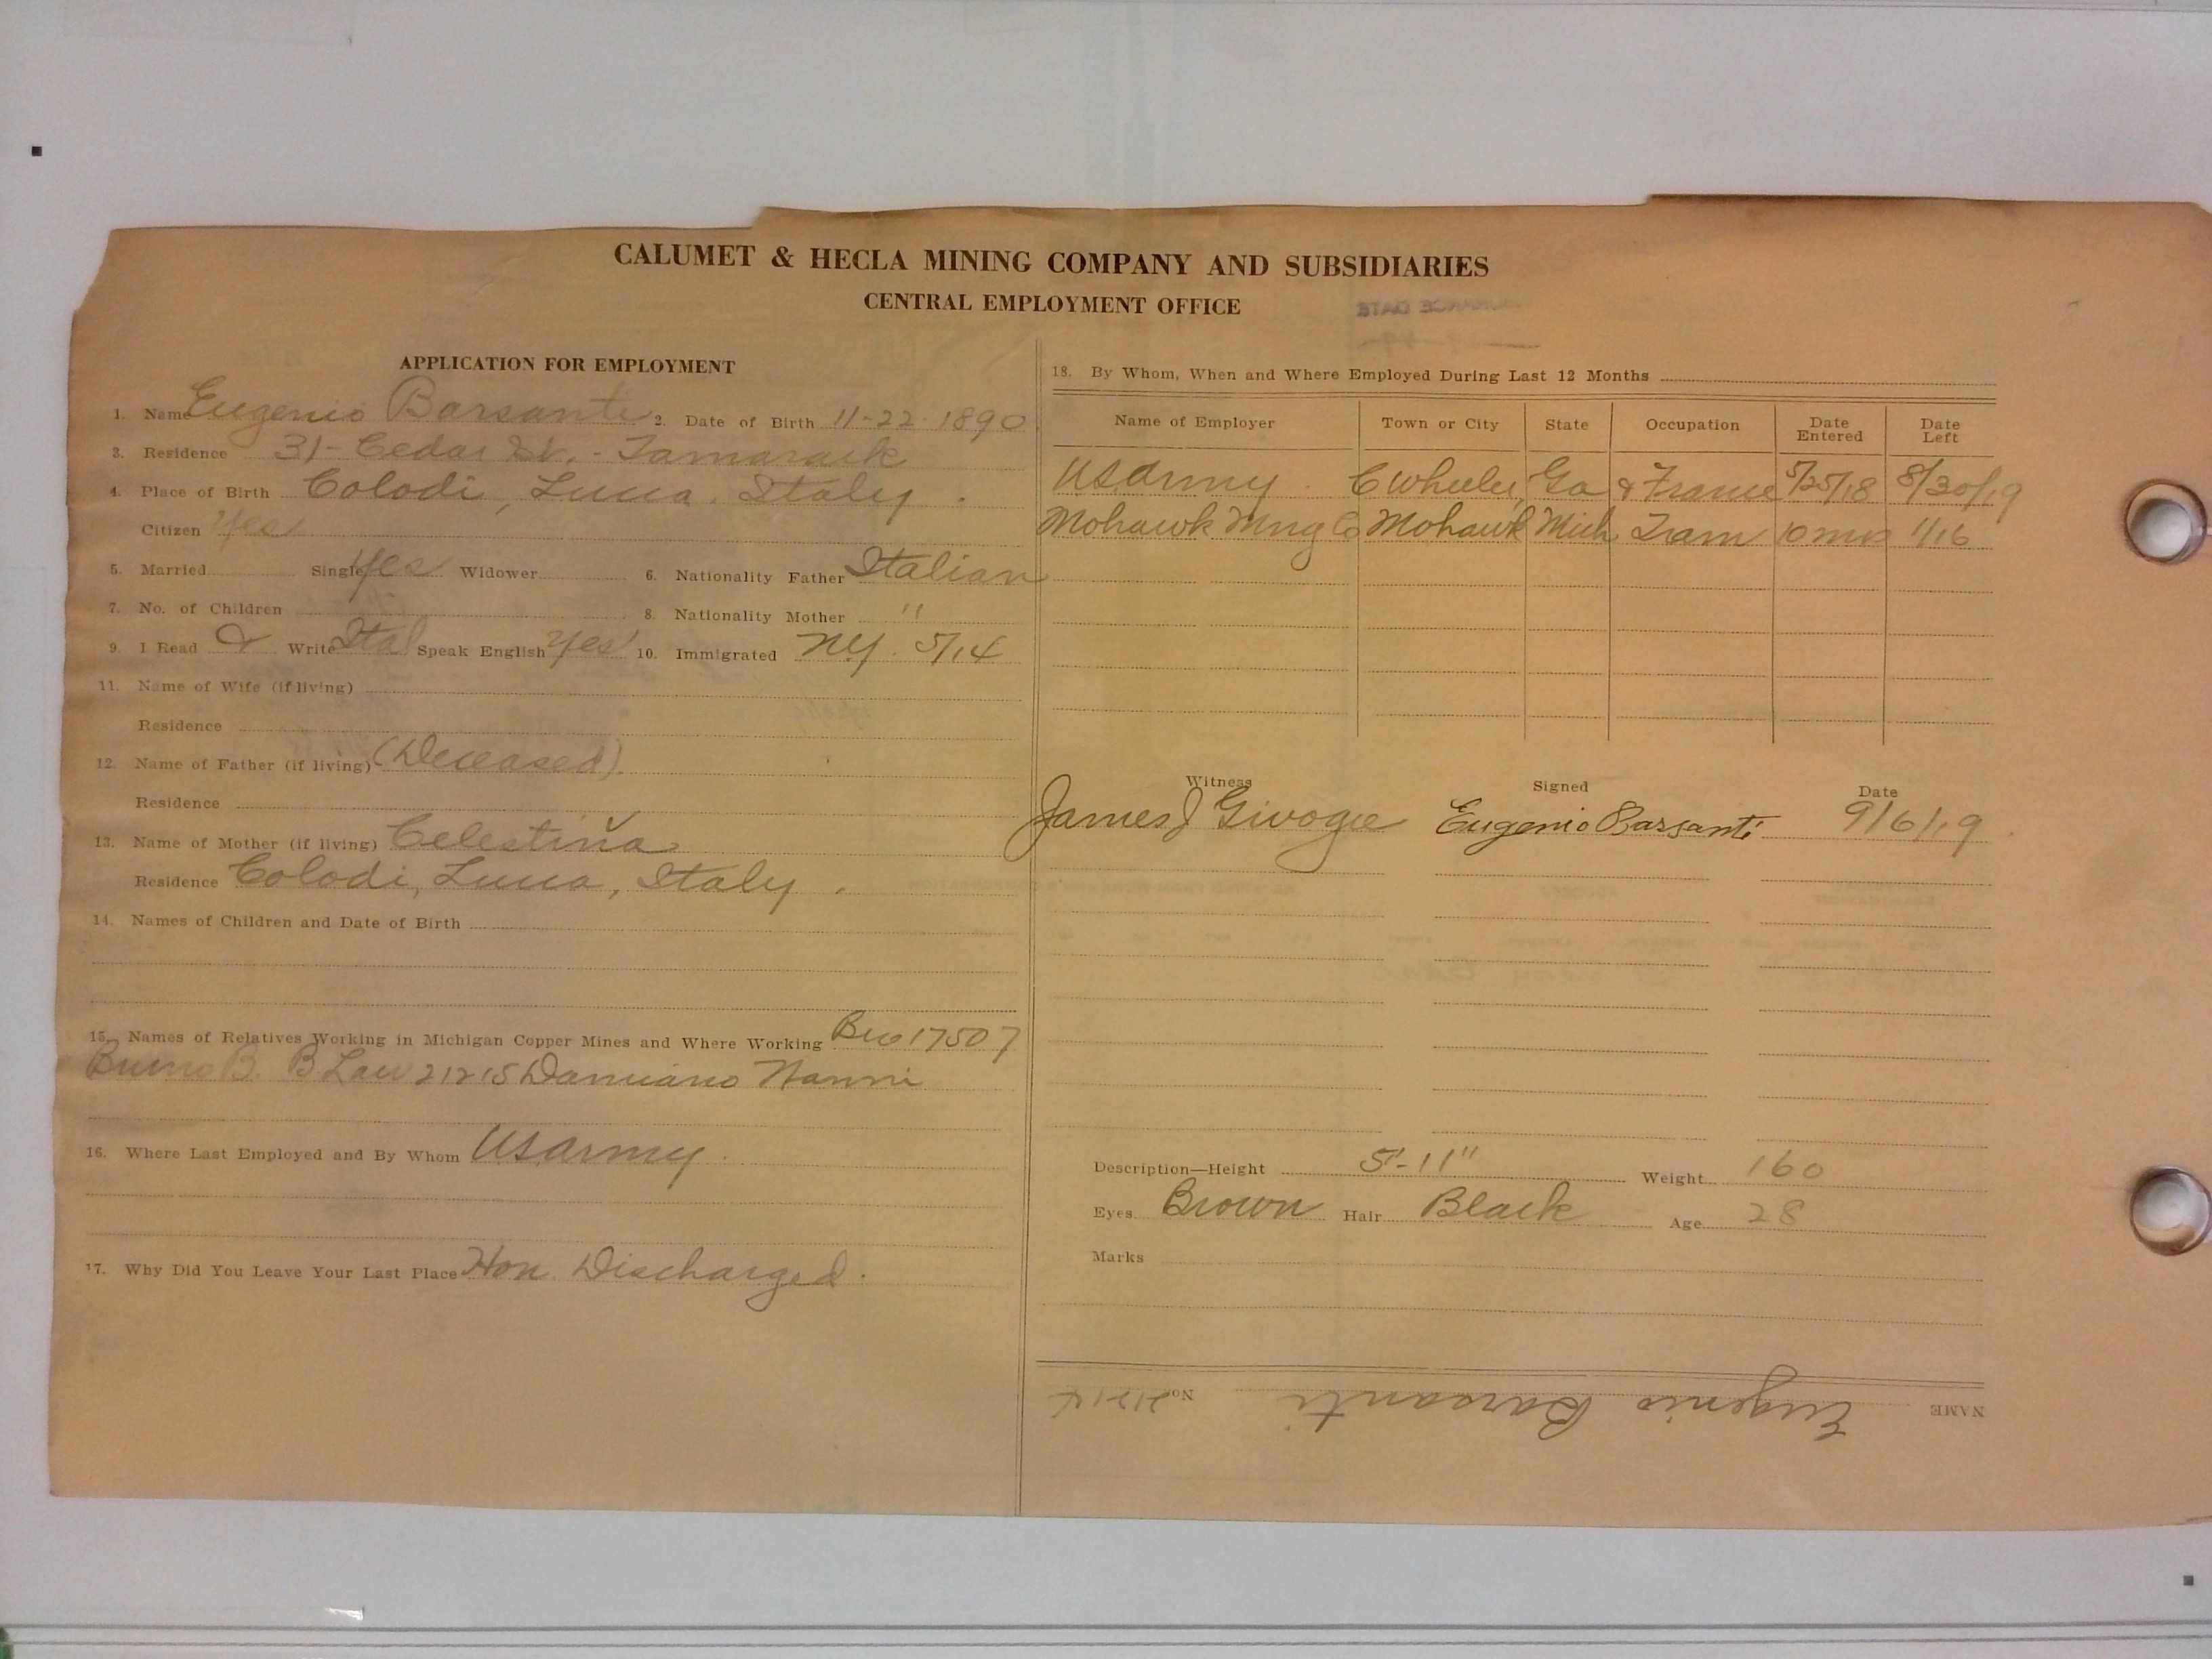 CALUMET & HECLA MINING COMPANY AND SUBSIDIARIES
CENTRAL EMPLOYMENT OFFICE
APPLICATION FOR EMPLOYMENT
1. Name Eugenio Barsanti 2. Date of Birth 11-22-1890
3. Residence 31- Cedar St. - Tamarack
4. Place of Birth Colodi, Lucca, Italy.
Citizen Yes
5. Married Single Yes Widower 6. Nationality Father Italian
7. No. of Children 8. Nationality Mother "
9. I Read & Write Ital Speak English Yes 10. Immigrated NY. 5/14
11. Name of Wife (if living)
Residence
12. Name of Father (if living) (Deceased)
Residence
13. Name of Mother (if living) Celestina
Residence Colodi, Lucca, Italy.
14. Names of Children and Date of Birth
15. Names of Relatives Working in Michigan Copper Mines and Where Working Bro 17507
Bruno B. B Law 21215 Damiano Nanni
16. Where Last Employed and By Whom US Army.
17. Why Did You Leave Your Last Place Hon. Discharged.
18. By Whom, When and Where Employed During Last 12 Months
Name of Employer Town or City State Occupation Date Entered Date Left
US Army. C Wheeler, Ga & France 5/25/18 8/30/19
Mohawk Mng Co Mohawk Mich Tram 10 mos 1/16
Witness Signed Date
James J Givogre Eugenio Barsanti 9/6/19
Description—Height 5'-11" Weight 160
Eyes Brown Hair Black Age 28
Marks
NAME Eugenio Barsanti No. 21214